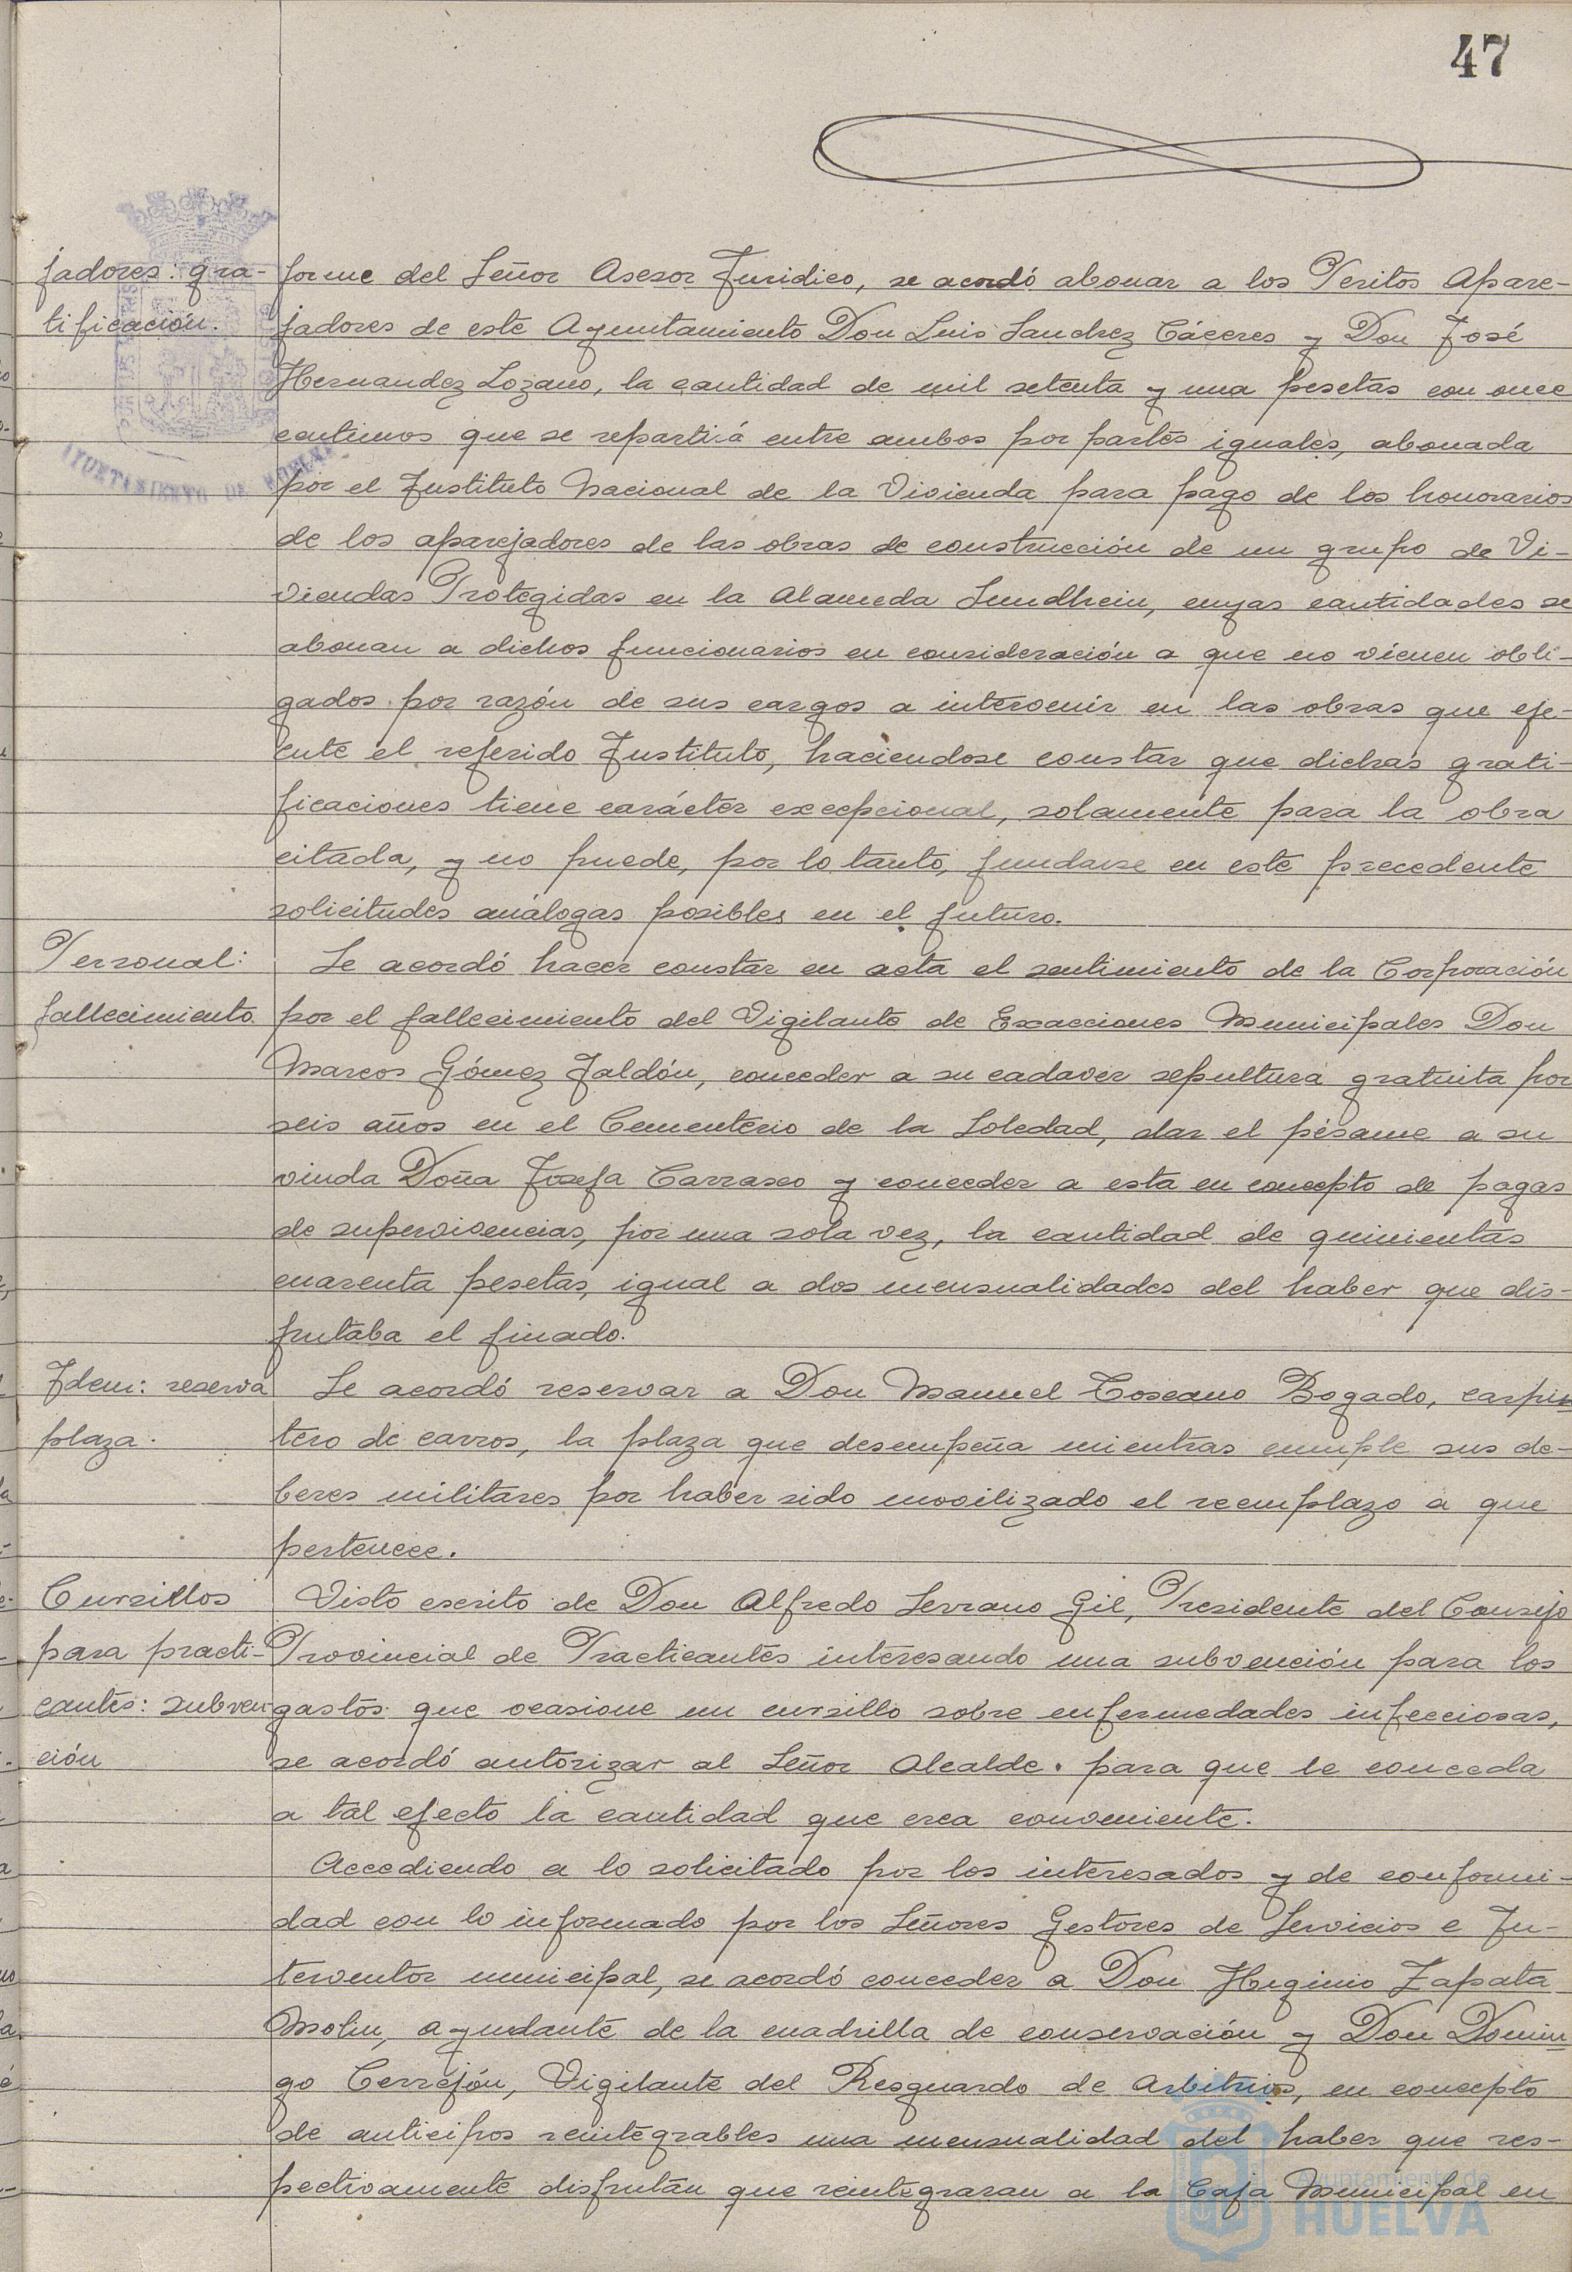 47
jadores: gra-
tificación.
forme del Señor Asesor Juridico, se acordó abonar a los Peritos Apare-
jadores de este Ayuntamiento Don Luis Sanchez Cáceres y Don José
Hernandez Lozano, la cantidad de mil setenta y una pesetas con once
centimos que se repartirá entre ambos por partes iguales, abonada
por el Instituto Nacional de la Vivienda para pago de los honorarios
de los aparejadores de las obras de construcción de un grupo de Vi-
viendas Protegidas en la Alameda Sundhein, cuyas cantidades se
abonan a dichos funcionarios en consideración a que no vienen obli-
gados por razón de sus cargos a intervenir en las obras que eje-
cute el referido Instituto, haciendose constar que dichas grati-
ficaciones tiene carácter excepcional, solamente para la obra
citada, y no puede, por lo tanto, fundarse en este precedente
solicitudes análogas posibles en el futuro.
Personal:
fallecimiento
Se acordó hacer constar en acta el sentimiento de la Corporación
por el fallecimiento del Vigilante de Exacciones Municipales Don
Marcos Gómez Jaldón, conceder a su cadaver sepultura gratuita por
seis años en el Cementerio de la Soledad, dar el pésame a su
viuda Doña Josefa Carrasco y conceder a esta en concepto de pagas
de supervivencias, por una sola vez, la cantidad de quinientas
cuarenta pesetas, igual a dos mensualidades del haber que dis-
frutaba el finado.
Idem: reserva
plaza.
Se acordó reservar a Don Manuel Toscano Bogado, carpin
tero de carros, la plaza que desempeña mientras cumple sus de-
beres militares por haber sido movilizado el reemplazo a que
pertenece.
Cursillos
para practi-
cantes: subven
ción
Visto escrito de Don Alfredo Serrano Gil, Presidente del Consejo
Provincial de Practicantes interesando una subvención para los
gastos que ocasione un cursillo sobre enfermedades infecciosas,
se acordó autorizar al Señor Alcalde. para que le conceda
a tal efecto la cantidad que crea conveniente.
Accediendo a lo solicitado por los interesados y de conformi-
dad con lo informado por los Señores Gestores de Servicios e In-
terventor municipal, se acordó conceder a Don Higinio Zapata
Molin, ayudante de la cuadrilla de conservación y Don Domin
go Cerrejón, Vigilante del Resguardo de Arbitrios, en concepto
de anticipos reintegrables una mensualidad del haber que res-
pectivamente disfrutan que reintegraran a la Caja Municipal en
AYUNTAMIENTO DE HUELVA
Ayuntamiento de
HUELVA